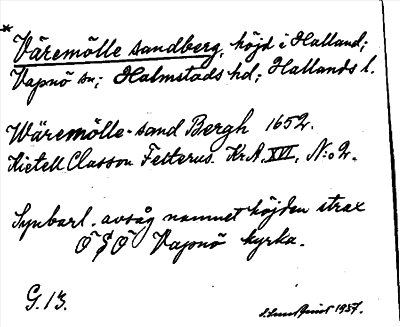 * Väremölle sandberg, höjd i Halland;
Vapnö sn; Halmstads hd; Hallands l.
Wäremölle-sand Bergh 1652.
Kietell Classon Felterus. KrA. XVI, N:o 2.
Synbarl. avsåg namnet höjden strax
Ö § Ö Vapnö kyrka.
G. 13.
1937.